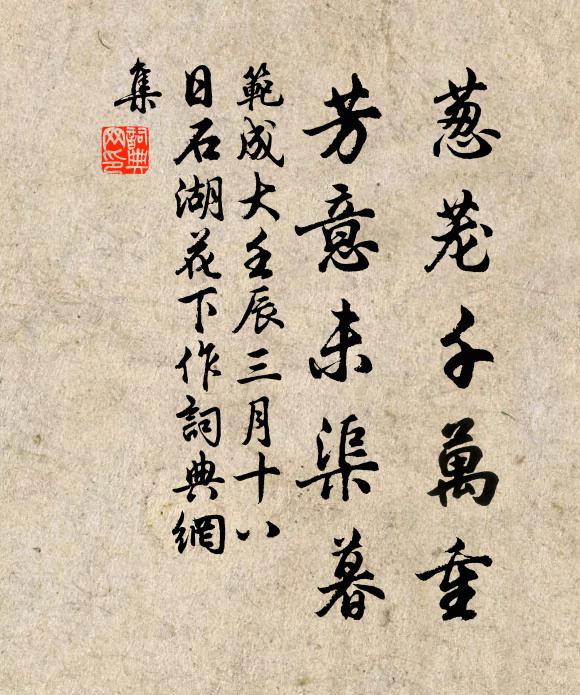 葱茏千萬重
芳意未渠暮
範成大壬辰三月十八
日石湖花下作詞典網
集
詞典
网印